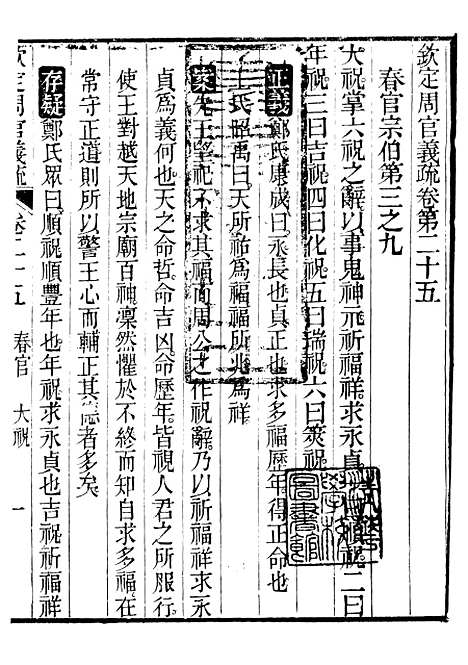 欽定周官義疏卷第二十五
春官宗伯第三之九
大祝掌六祝之辭以事鬼神示祈福祥求永貞一曰順祝二曰
年祝三曰吉祝四曰化祝五曰瑞祝六曰筴祝
正義鄭氏康成曰永長也貞正也求多福歷年得正命也
王氏昭禹曰天所祚為福福所兆為祥
案先王望祀不求其福而周公之作祝辭乃以祈福祥求永
貞為義何也天之命哲命吉凶命歷年皆視人君之所服行
使王對越天地宗廟百神凜然懼於不終而知自求多福在
常守正道則所以警王心而輔正其德者多矣
存疑鄭氏眾曰順祝順豐年也年祝求永貞也吉祝祈福祥
欽定周官義疏 卷二十五 春官 大祝 一